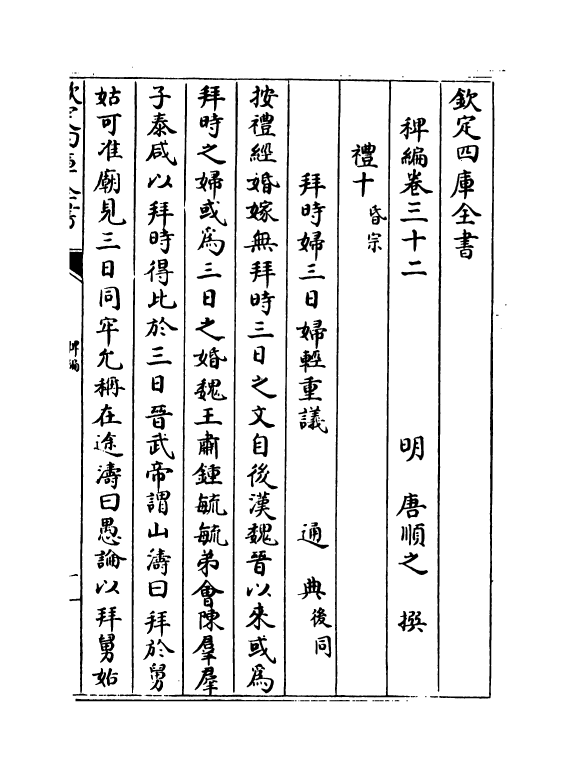 欽定四庫全書
稗編卷三十二　明　唐順之　撰
禮十昏宗
拜時婦三日婦輕重議　通典後同
按禮經婚嫁無拜時三日之文自後漢魏晉以來或為
拜時之婦或為三日之婚魏王肅鍾毓毓弟會陳羣羣
子泰咸以拜時得比於三日晉武帝謂山濤曰拜於舅
姑可准廟見三日同牢允稱在途濤曰愚論以拜舅姑
欽定四庫全書
稗編
一